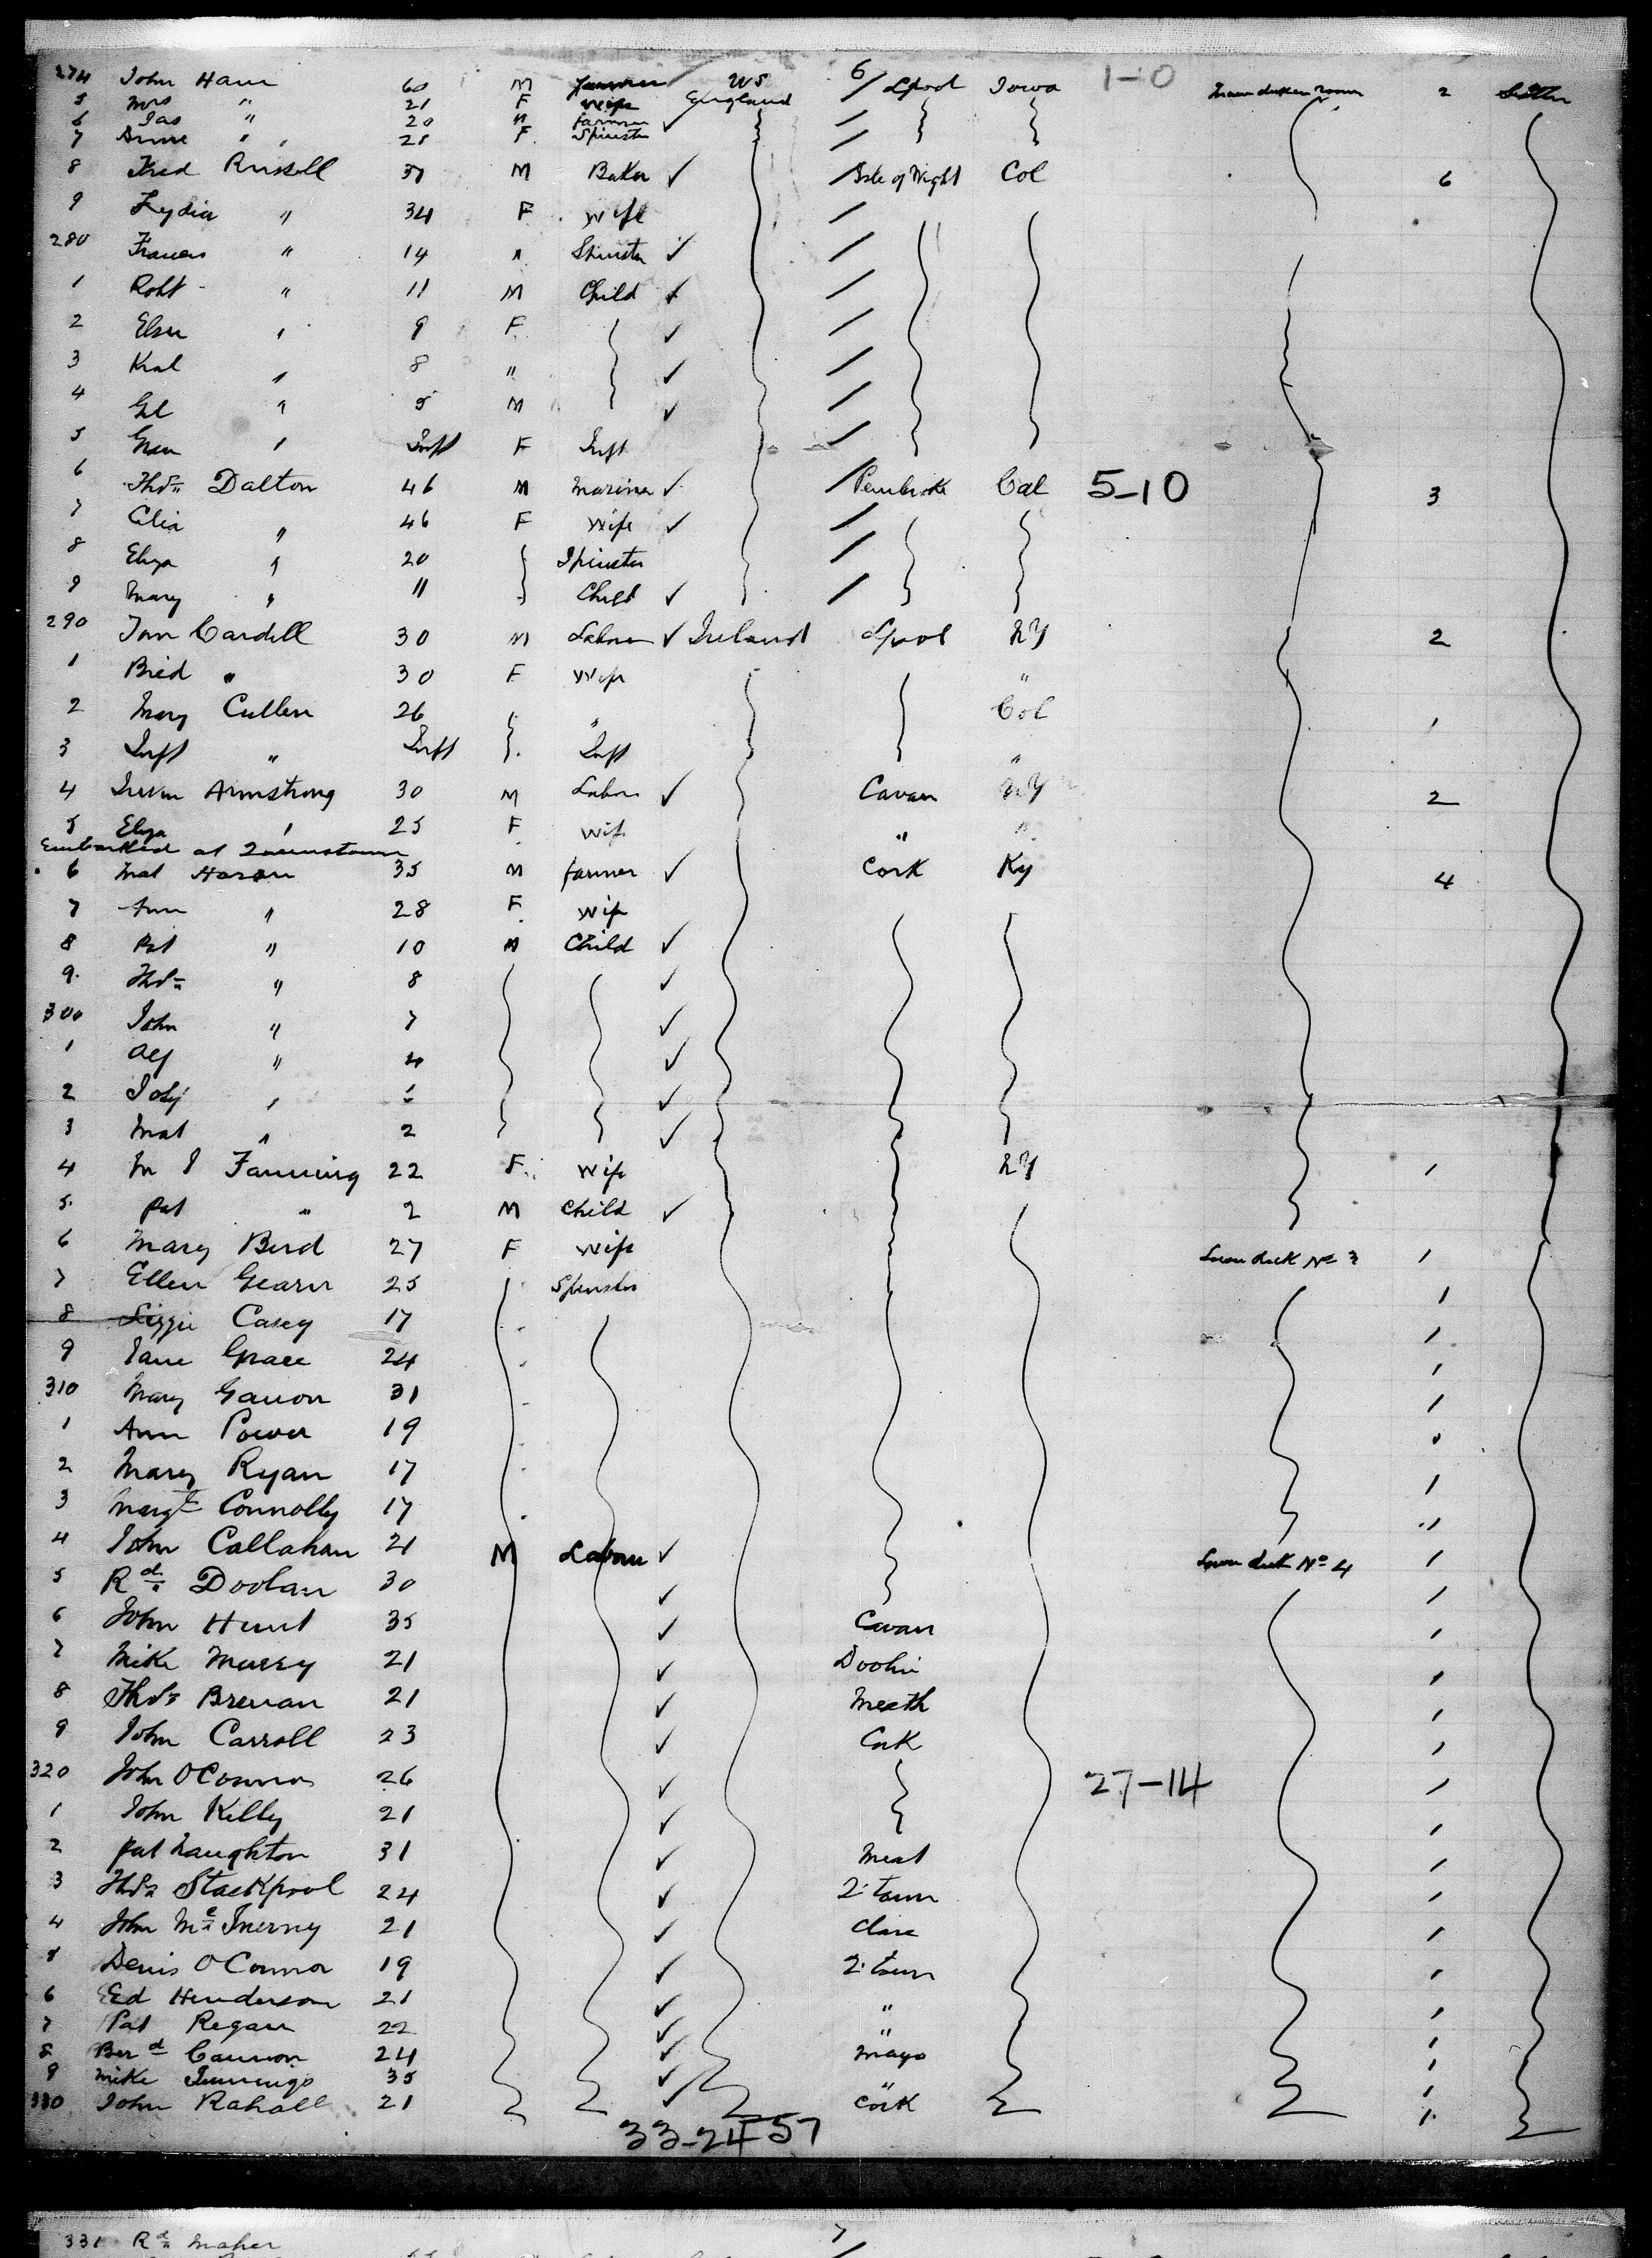 274 John Ham 60 M Farmer U S England 6/ Lpool Iowa 1-0 2
5 Mrs " 21 F Wife
6 Jas " 20 " Farmer ✓
7 Anne " 21 F Spinster
8 Fred Russell 37 M Baker ✓ Isle of Wight Col 6
9 Lydia " 34 F Wife
280 Frances " 14 " Spinster ✓
1 Robt " 11 M Child ✓
2 Elsie " 9 F ✓
3 " 8 " ✓
4 " 5 M ✓
5 " Inft F Inft
6 Thos Dalton 46 M Mariner ✓ Pembroke Cal 5-10 3
7 Celia " 46 F Wife ✓
8 Eliza " 20 Spinster
9 Mary " 11 Child ✓
290 Tom Cardell 30 M Labour ✓ Ireland Lpool NY 2
1 Brid " 30 F Wife "
2 Mary Cullen 26 " Col 1
3 Inft " Inft Inft "
4 Armstrong 30 M Labour ✓ Cavan NY 2
5 Eliza " 25 F Wife " "
Embarked at Queenstown
6 Mat Horan 35 M Farmer ✓ Cork Ky 4
7 Ann " 28 F Wife
8 Pat " 10 M Child ✓
9 Thos " 8 ✓
300 John " 7 ✓
1 Alf " 4 ✓
2 Josh " ✓
3 Mat " 2 ✓
4 M J Fanning 22 F Wife NY 1
5 Pat " 2 M Child ✓
6 Mary Bird 27 F Wife Lower deck No 3 1
7 Ellen Gearn 25 Spinster 1
8 Lizzie Casey 17 1
9 Jane Grace 24 1
310 Mary Gavon 31 1
1 Ann Power 19 1
2 Mary Ryan 17 1
3 Margt Connolly 17 1
4 John Callahan 21 M Labour ✓ Lower deck No 4 1
5 Rd Doolan 30 ✓ 1
6 John Hunt 35 ✓ Cavan 1
7 Mike Murry 21 ✓ Doolin 1
8 Thos Brenan 21 ✓ Meath 1
9 John Carroll 23 ✓ Cork 1
320 John O'Connor 26 ✓ 27-14 1
1 John Kelly 21 ✓ 1
2 Pat Naughton 31 ✓ Meat 1
3 Thos Stackpool 24 ✓ Q. town 1
4 John McInerny 21 ✓ Clare 1
5 Denis O'Connor 19 ✓ Q. town 1
6 Ed Henderson 21 ✓ " 1
7 Pat Regan 22 ✓ " 1
8 Berd Cannon 24 ✓ Mayo 1
9 Mike Jennings 35 ✓ " 1
330 John Rahall 21 ✓ Cork 1
33-24 57
331 Rd Maher 7/